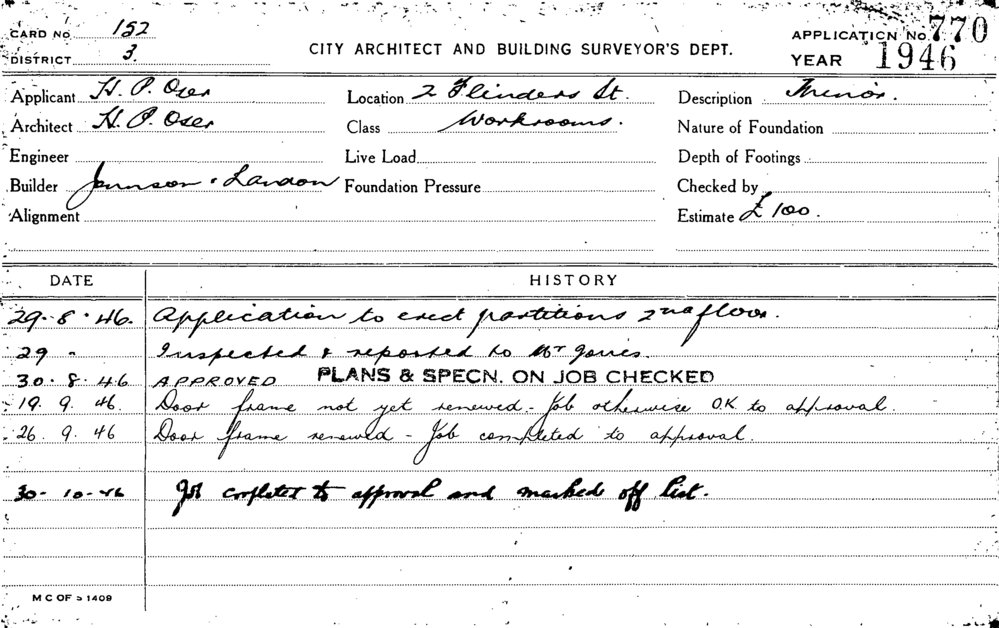 CARD No. 152
APPLICATION No. 770
DISTRICT 3.
CITY ARCHITECT AND BUILDING SURVEYOR'S DEPT.
YEAR 1946
Applicant H. P. Oser
Location 2 Flinders St.
Description
Architect H. P. Oser
Class Workrooms.
Nature of Foundation
Engineer
Live Load
Depth of Footings
Builder
Foundation Pressure
Checked by
Alignment
Estimate £100.
DATE
HISTORY
29.8.46. Application to erect partitions 2nd floor.
29 " Inspected & reported to Mr
30.8.46 APPROVED PLANS & SPECN. ON JOB CHECKED
19.9.46. Door frame not yet renewed - Job otherwise OK to approval.
26.9.46 Door frame renewed - Job completed to approval.
30-10-46 Job completed to approval and marked off list.
M C OF S 1409